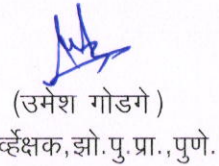 (उमेश गोडगे)
र्व्हेक्षक,झो.पु.प्रा.,पुणे.